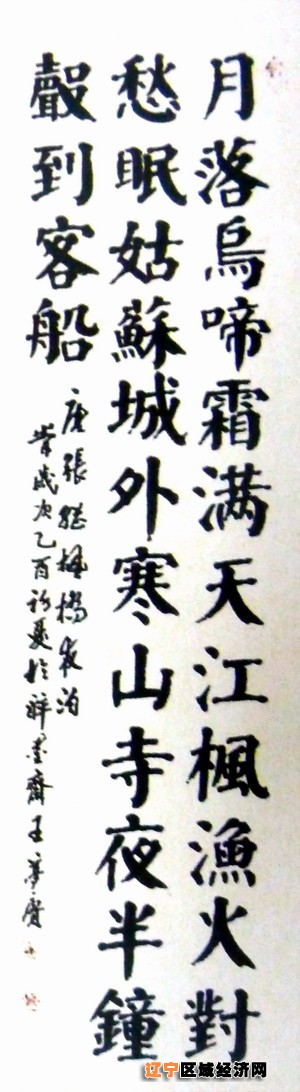 月落烏啼霜满天江楓漁火對
愁眠姑蘇城外寒山寺夜半鐘
聲到客船
唐張継楓橋夜泊
歲次乙酉初夏於醉墨齋王夢
辽宁区域经济网